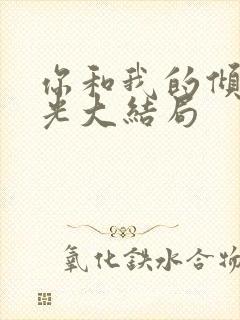 你和我的倾
光大結局
氧化鉄水合物